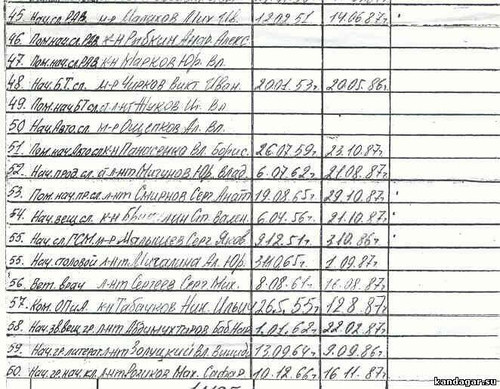 45. Нач.сл.РАВ м-р Малахов Мих. Ив. 12.02.51 14.06.87г
46. Пом.нач.сл.РАВ к-н Рыбкин Анар. Алекс
47. Пом.нач.сл.РАВ к-н Марков Юр. Вл.
48. Нач.Б.Т.сл. м-р Чирков Викт Иван. 20.01.53г 20.05.86г
49. Пом.нач.БТ.сл ст.л-нт Жуков Иг. Вл
50 Нач.авто.сл. м-р Ощепков Ал. Вл.
51. Пом.нач.Авто.сл к-н Панасенко Вл. Борис. 26.07.59г 23.10.87г
52. Нач.прод.сл. ст.л-нт Мигунов Юр. Влад. 6.07.62г 21.08.87г
53. Пом.нач.пр.сл. л-нт Смирнов Серг Анат 19.08.65г 29.10.87г
54. Нач.вещ.сл. к-н Ст Вален. 6.04.56г 21.10.87г
55. Нач.сл.ГСМ м-р Малышев Серг. Яков 9.12.51г 3.10.86г
55. Нач.столовой л-нт Мигалина Ал. Юр. 31.10.65г 1.09.87г
56. Вет. врач л-нт Сергеев Серг Мих. 8.08.61г 16.08.87г
57. Ком. ОПиА к-н Табачнов Ник. Ильич 26.5.55г 12.8.87г
58. Нач.зв.вещ.гр. л-нт 1.01.62г 22.02.87г
59. Нач.гр.литерат л-нт Зорицкий Вл. 13.09.64г 9.09.86г
60. л-нт Мах. 10.12.66г 16.11.87г
kandagar.su